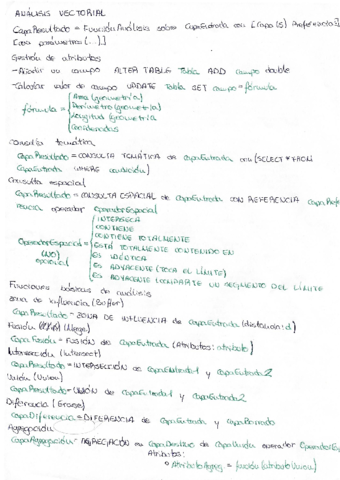 ANÁLISIS VECTORIAL
CapaResultado = FunciónAnálisis sobre CapaEntrada con [Capa(s) Referencia(s)]
[con parámetros (...)]
Gestión de atributos
-Añadir un campo ALTER TABLE Tabla ADD campo double
-Calcular valor de campo UPDATE Tabla SET campo = fórmula
fórmula = Área (geometría)
Perímetro (geometría)
Longitud (geometría)
Coordenadas
Consulta temática
CapaResultado = CONSULTA TEMÁTICA de CapaEntrada con (SELECT * FROM
CapaEntrada WHERE condición)
Consulta espacial
CapaResultado = CONSULTA ESPACIAL de CapaEntrada con REFERENCIA
operador OperadorEspacial
INTERSECA
CONTIENE
CONTIENE TOTALMENTE
OperadorEspacial = ESTÁ TOTALMENTE CONTENIDO EN
(NO) ES IDÉNTICA
opcional ES ADYACENTE (TOCA EL LÍMITE)
ES ADYACENTE (COMPARTE UN SEGMENTO DEL LÍMITE
Funciones básicas de análisis
Zona de influencia (Buffer)
CapaResultado = ZONA DE INFLUENCIA de CapaEntrada (distancia: d)
Fusión (Merge)
Capa Fusión = FUSIÓN de CapaEntrada (Atributos: atributo)
Intersección (Intersect)
CapaResultado = INTERSECCIÓN de CapaEntrada1 y CapaEntrada2
Unión (Union)
CapaResultado = UNIÓN de CapaEntrada1 y CapaEntrada2
Diferencia (Erase)
CapaDiferencia = DIFERENCIA de CapaEntrada y CapaBorrado
Agregación
CapaAgregación = AGREGACIÓN en CapaDestino de CapaUnión operador
Atributos: